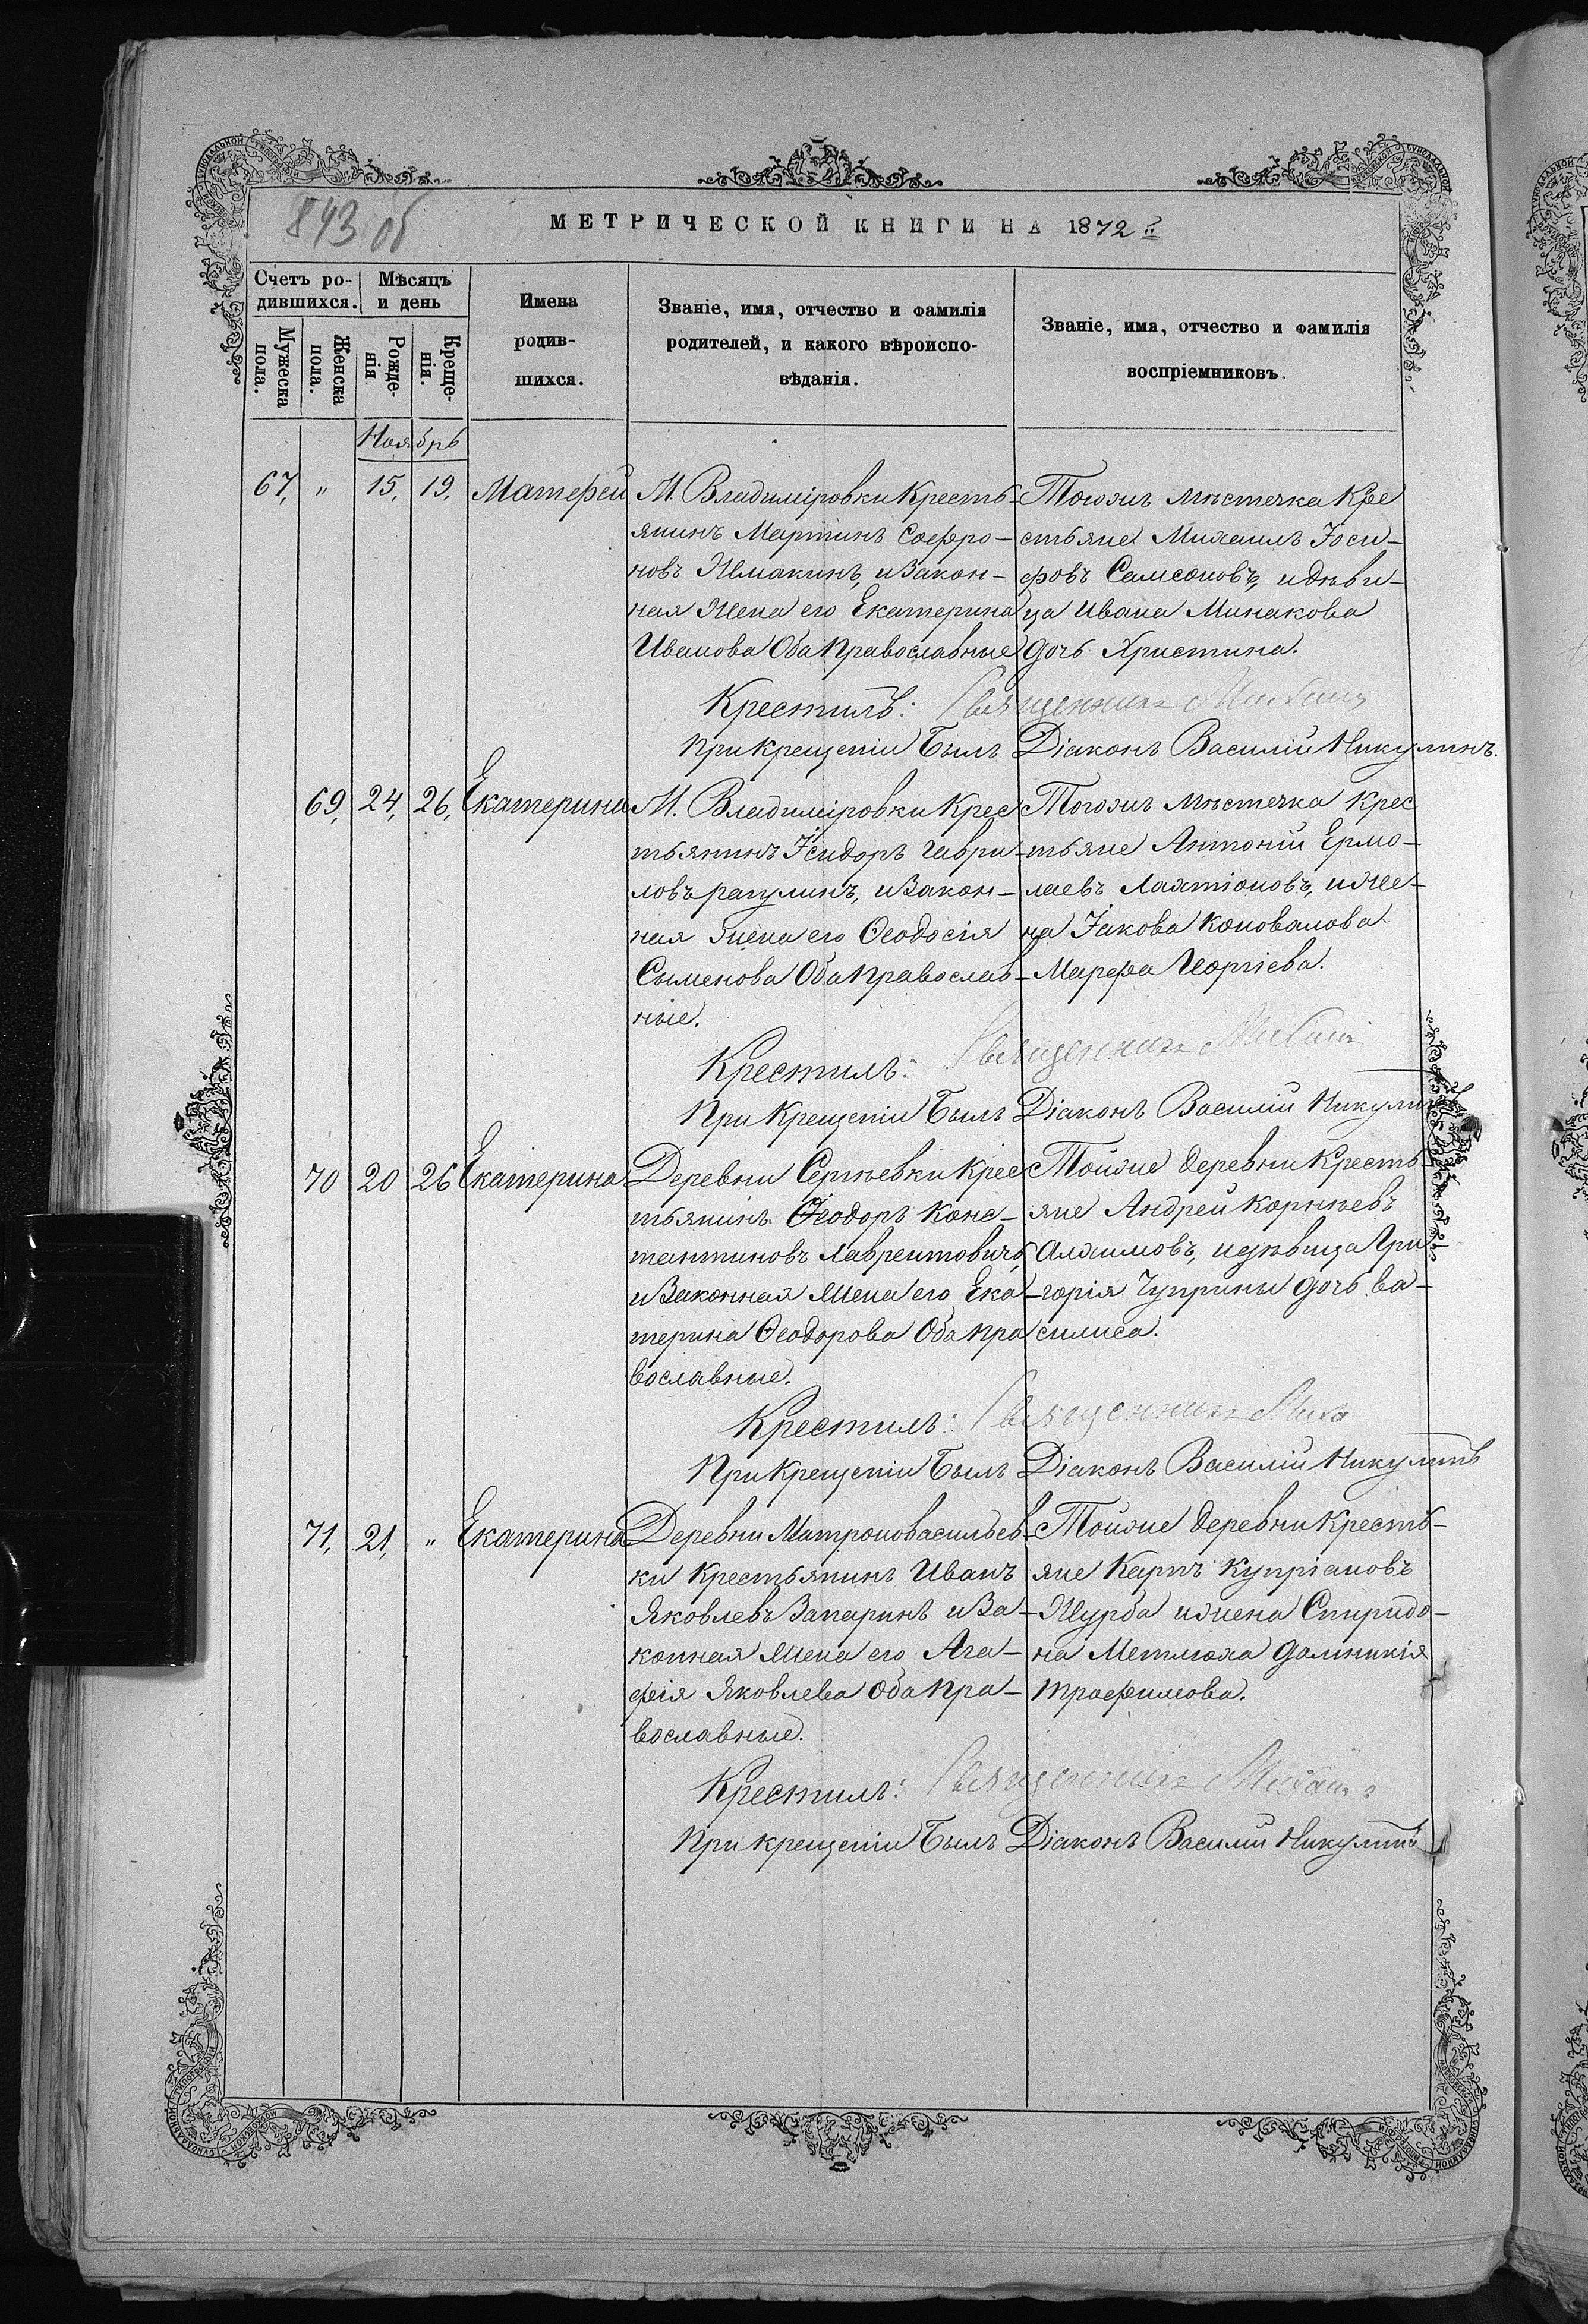 843 об
МЕТРИЧЕСКОЙ КНИГИ НА 1872 й
Счетъ ро-
дившихся.
Мѣсяцъ
и день
Мужеска
пола.
Женска
пола.
Рожде-
нія
Креще-
нія.
Имена
родив-
шихся.
Званіе, имя, отчество и фамилія
родителей, и какого вѣроиспо-
вѣданія.
Званіе, имя, отчество и фамилія
воспріемниковъ.
Ноябрь
67, " 15, 19, Матфей
М. Владиміровки Кресть-
янинъ Мартинъ Софро-
новъ и Закон-
ная Жена его Екатерина
Иванова Оба Православные
Тогожъ мѣстечка Кре
стьяне Михаилъ Іоси-
фовъ Самсоновъ, и дѣви-
ца Ивана Минакова
дочь Христина.
Крестилъ: Священникъ Михаилъ
При Крещеніи Былъ Діаконъ Василій Никулинъ.
69, 24, 26, Екатерина
М. Владиміровки Крес
тьянинъ Ісидоръ Гаври-
ловъ рагулинъ, и Закон-
ная жена его Ѳеодосія
Сыменова Оба Православ-
ные.
Тогожъ мѣстечка Крес
тьяне Антоній Ермо-
лаевъ Лахтіоновъ, и же-
на Іакова Коновалова
Марфа Георгіева.
Крестилъ: Священникъ Михаи
При Крещеніи Былъ Діаконъ Василій Никулинъ
70 20 26 Екатерина
Деревни Сергѣевки Крес
тьянинъ Ѳеодоръ Конс-
тантиновъ Лаврентовичъ,
и Законная Жена его Ека-
терина Ѳеодорова Оба Пра
вославные.
Тойже деревни Кресть
яне Андрей Корнѣевъ
и дѣвица Гри-
горія Чуприны дочь ва-
силиса.
Крестилъ: Священникъ Миха
При Крещеніи Былъ Діаконъ Василій Никулинъ
71, 21, " Екатерина
Деревни Митроповасильев-
ки Крестьянинъ Иванъ
Яковлевъ Запаринъ и За-
конная Жена его Ага-
фія Яковлева Оба Пра-
вославные.
Тойже деревни Кресть-
яне Карпъ Купріановъ
Журба и жена Спиридо-
на Метлюха домникія
Трофимова.
Крестилъ: Священникъ Михаилъ
При крещеніи Былъ Діаконъ Василій Никулинъ